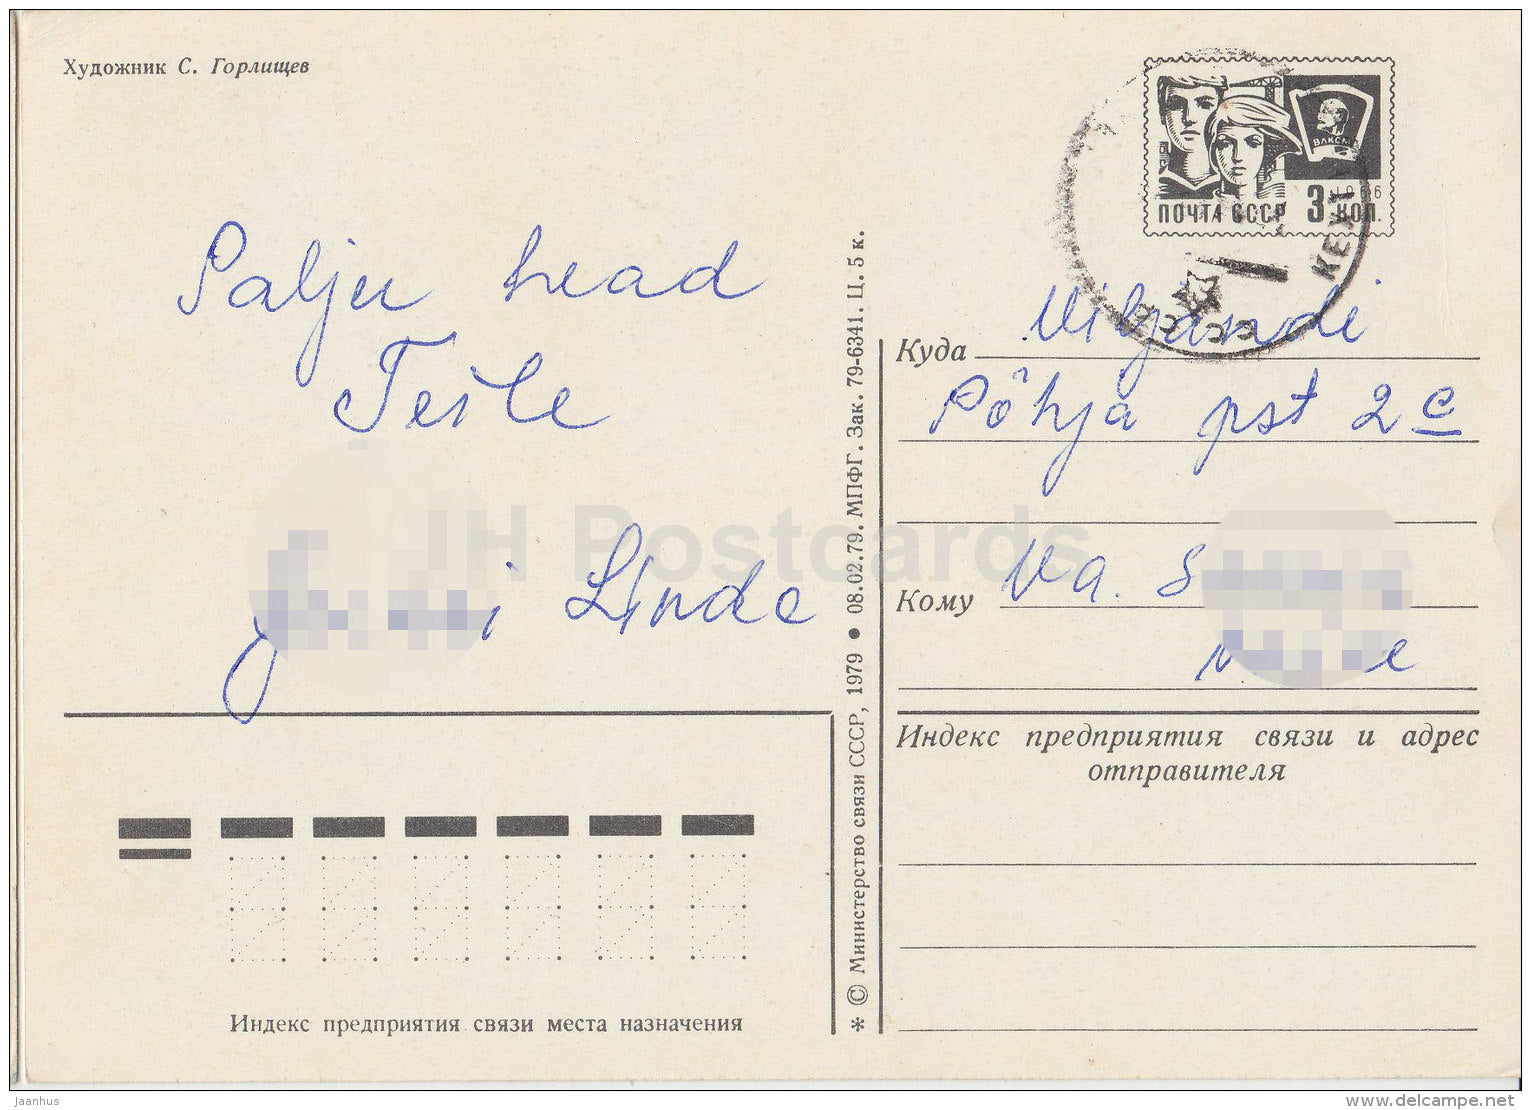 Художник С. Горлищев
ПОЧТА СССР 3 КОП.
1966
ВЛКСМ
СССР
Palju head
Teile
Linda
JH Postcards
Куда Viljandi
Põhja pst 2 e
Кому Va. S
Индекс предприятия связи и адрес
отправителя
* © Министерство связи СССР, 1979 ● 08.02.79. МПФГ. Зак. 79-6341. Ц. 5 к.
Индекс предприятия связи места назначения
Jaanhus
delcampe.net